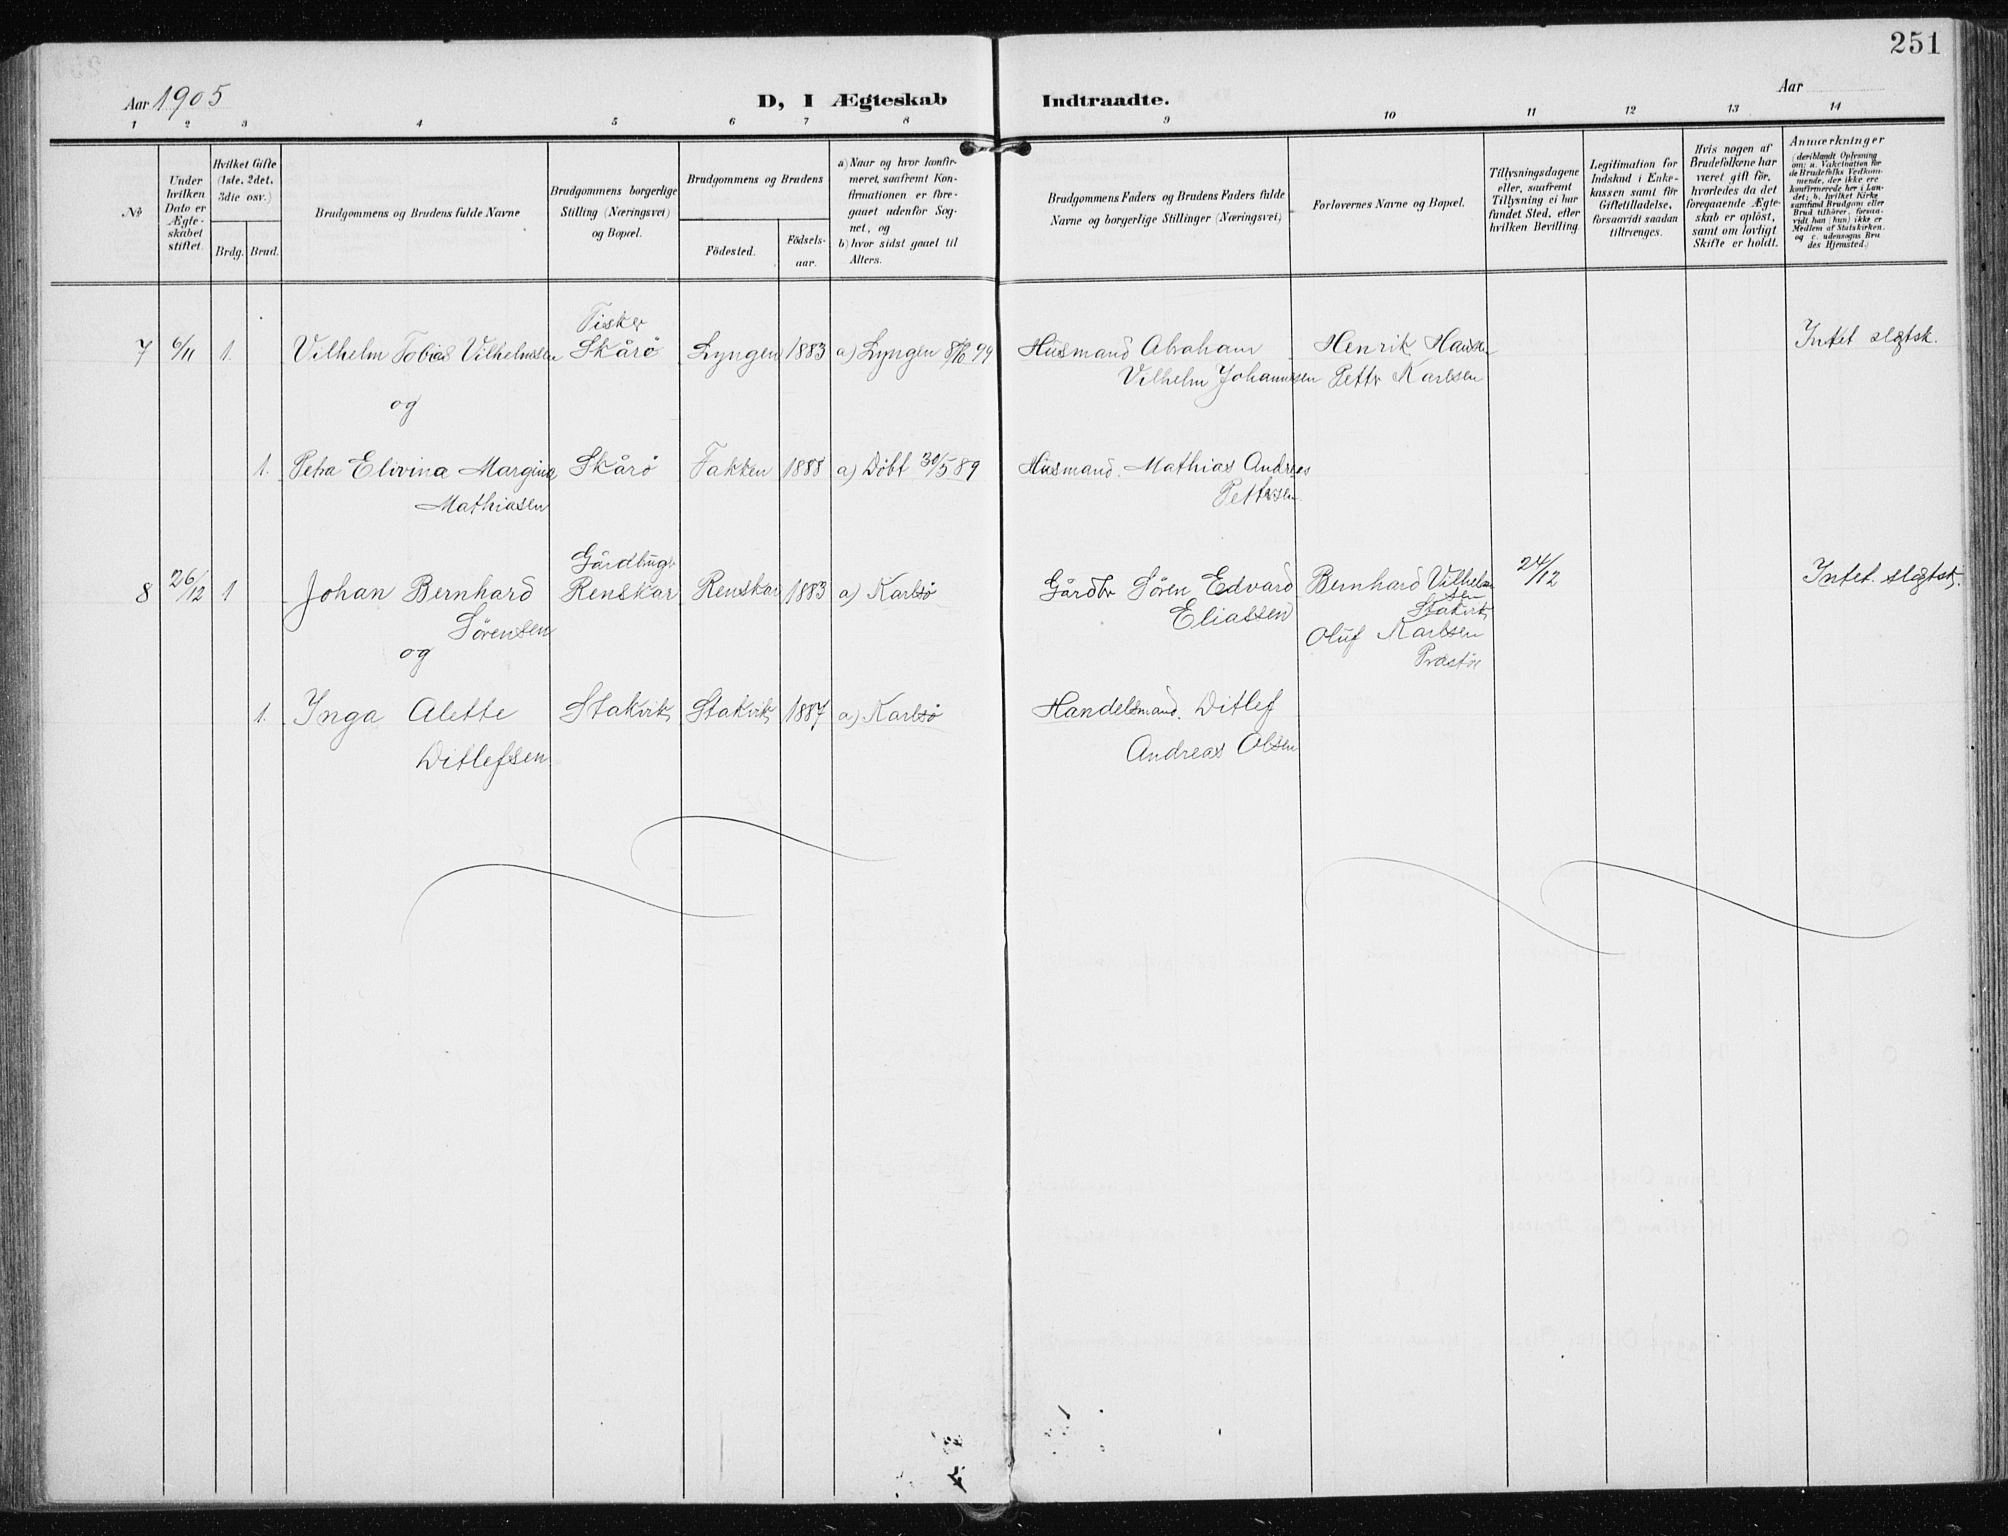 251
Aar 1905
D, I Ægteskab Indtraadte.
Aar
1 2 3 4 5 6 7 8 9 10 11 12 13 14
№
Under hvilken Dato er Ægteskabet stiftet.
Hvilket Gifte (1ste, 2det, 3die osv.)
Brdg. Brud.
Brudgommens og Brudens fulde Navne
Brudgommens borgerlige Stilling (Næringsvei) og Bopæl.
Brudgommens og Brudens
Födested. Födsels-aar.
a) Naar og hvor konfirmeret, saafremt Konfirmationen er foregaaet udenfor Sognet, og
b) hvor sidst gaaet til Alters.
Brudgommens Faders og Brudens Faders fulde Navne og borgerlige Stillinger (Næringsvei)
Forlovernes Navne og Bopæl.
Tillysningsdagene eller, saafremt Tillysning ei har fundet Sted, efter hvilken Bevilling.
Legitimation for Indskud i Enkekassen samt för Giftetilladelse, forsaavidt saadan tiltrænges.
Hvis nogen af Brudefolkene har været gift för, hvorledes da det foregaaende Ægteskab er oplöst, samt om lovligt Skifte er holdt.
Anmærkninger (deriblandt Oplysning om: a. Vakcination för de Brudefolks Vedkommende, der ikke ere konfirmerede her i Landet; b. hvilket Kirkesamfund Brudgom eller Brud tilhörer, forsaavidt han (hun) ikke er Medlem af Statskirken. og c. udensogns Brudes Hjemsted.)
7 6/11 1. Vilhelm Tobias Vilhelmsen Fisker Skårö Lyngen 1883 a) Lyngen 8/10 99 Husmand Abraham Henrik Hansen Intet slægtsk.
Vilhelm Johannesen Petter Karlsen
og
1. Petra Elivina Margina Skårö Fakken 1888 a) Döbt 30/5 89 Husmand. Mathias Andreas
Mathiasen Pettersen.
8 26/12 1 Johan Bernhard Gårdbruger Renskar Renskar 1883 a) Karlsö Gårdbr Sören Edvard Bernhard Vilhelmsen 24/12 Intet slægtsk.
Sörensen Eliassen Stakvik
og Oluf Karlsen
1. Inga Alette Stakvik Stakvik 1887 a) Karlsö Handelsmand. Ditlef
Ditlefsen Andreas Olsen